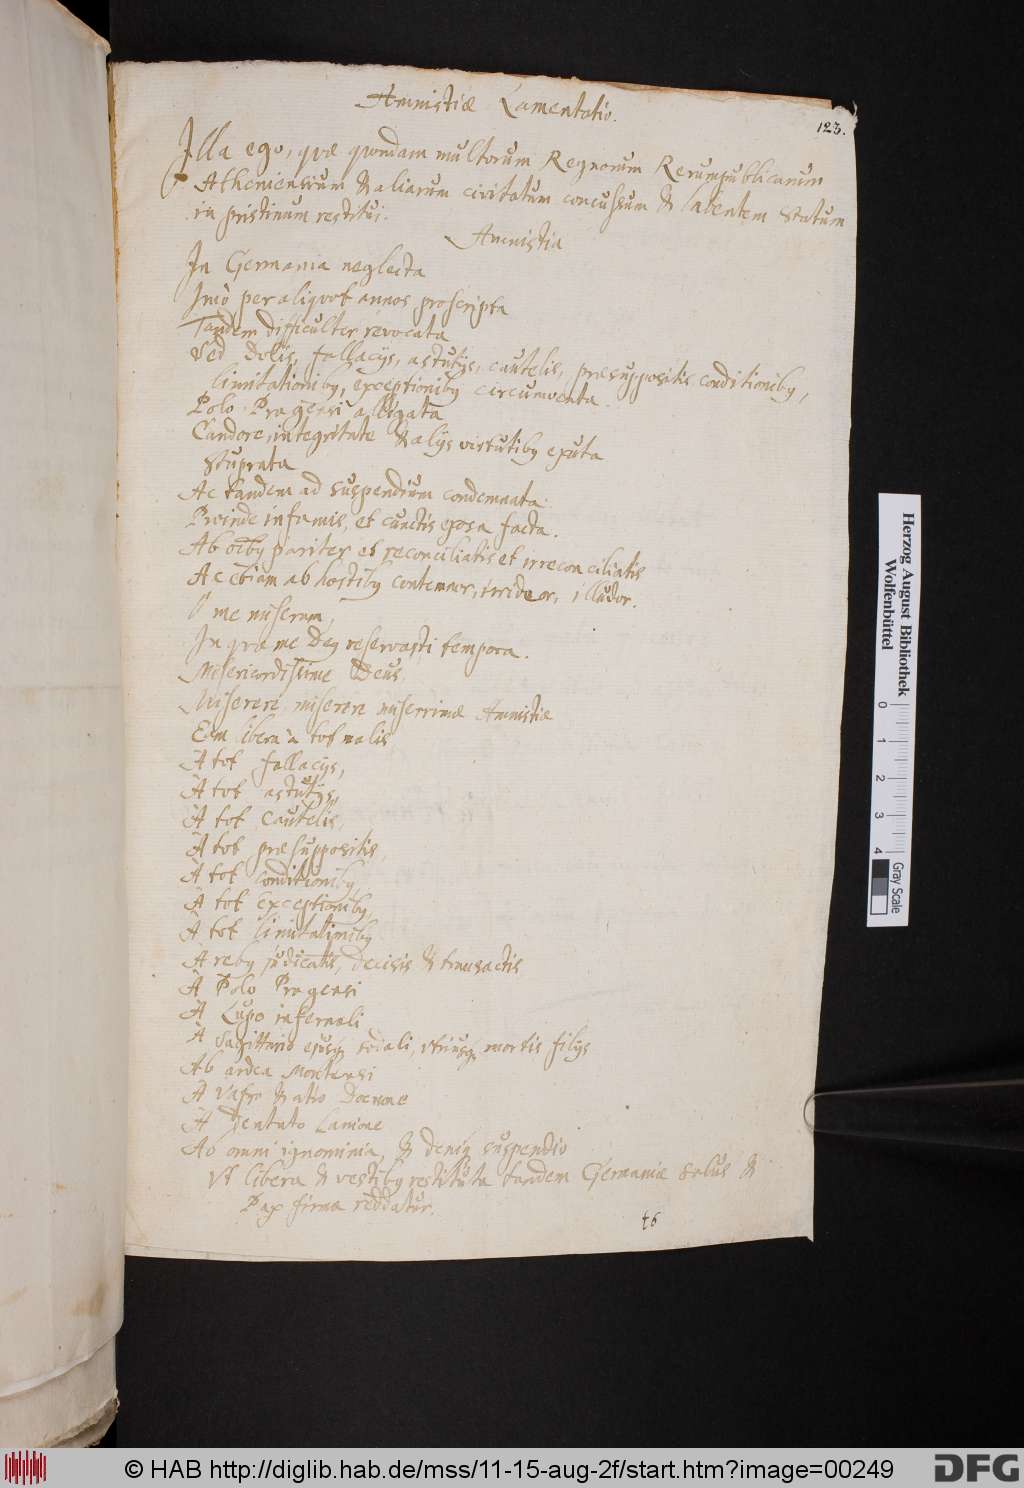 Amnistiæ Lamentatio.
123.
Illa ego, quæ quondam multorum Regnorum Rerumpublicarum
Atheniensium & aliarum civitatum concussum & labentem statum
in pristinum restitui.
Amnistia
In Germania neglecta
Imò per aliquot annos proscripta
Tandem difficulter revocata
Sed dolis, fallacijs, astutijs, cautelis, præsuppositis conditionibꝫ,
limitationibꝫ, exceptionibꝫ circumventa.
Polo Pragensi alligata
Candore, integritate & alijs virtutibꝫ exuta
Stuprata
Ac tandem ad suspendium condemnata
Proinde infamis, et cunctis exosa facta.
Ab oibꝫ pariter et reconciliatis et irreconciliatis
Ac etiam ab hostibꝫ contemnor, irrideor, illudor.
O me miseram,
In quæ me Deꝰ reservasti tempora.
Misericordissime Deus,
Miserere, miserere miserrimæ Amnistiæ
Eam libera à tot malis
A tot fallacijs,
A tot astutijs,
A tot cautelis,
A tot præsuppositis,
A tot conditionibꝫ,
A tot exceptionibꝫ,
A tot limitationibꝫ
A rebꝫ judicatis, decisis & transactis
A Polo Pragensi
A Lupo infernali
A Sagittario ejusqꝫ sociali, utriusqꝫ mortis filijs
Ab ardea
A Vafro & atro Dæmone
A Dentato Lanione
Ab omni ignominia, & deniqꝫ suspendio
Ut libera & vestibꝫ restituta tandem Germaniæ salus &
Pax firma reddatur.
t6
Herzog August Bibliothek
Wolfenbüttel
0 1 2 3 4
Gray Scale
© HAB http://diglib.hab.de/mss/11-15-aug-2f/start.htm?image=00249
DFG